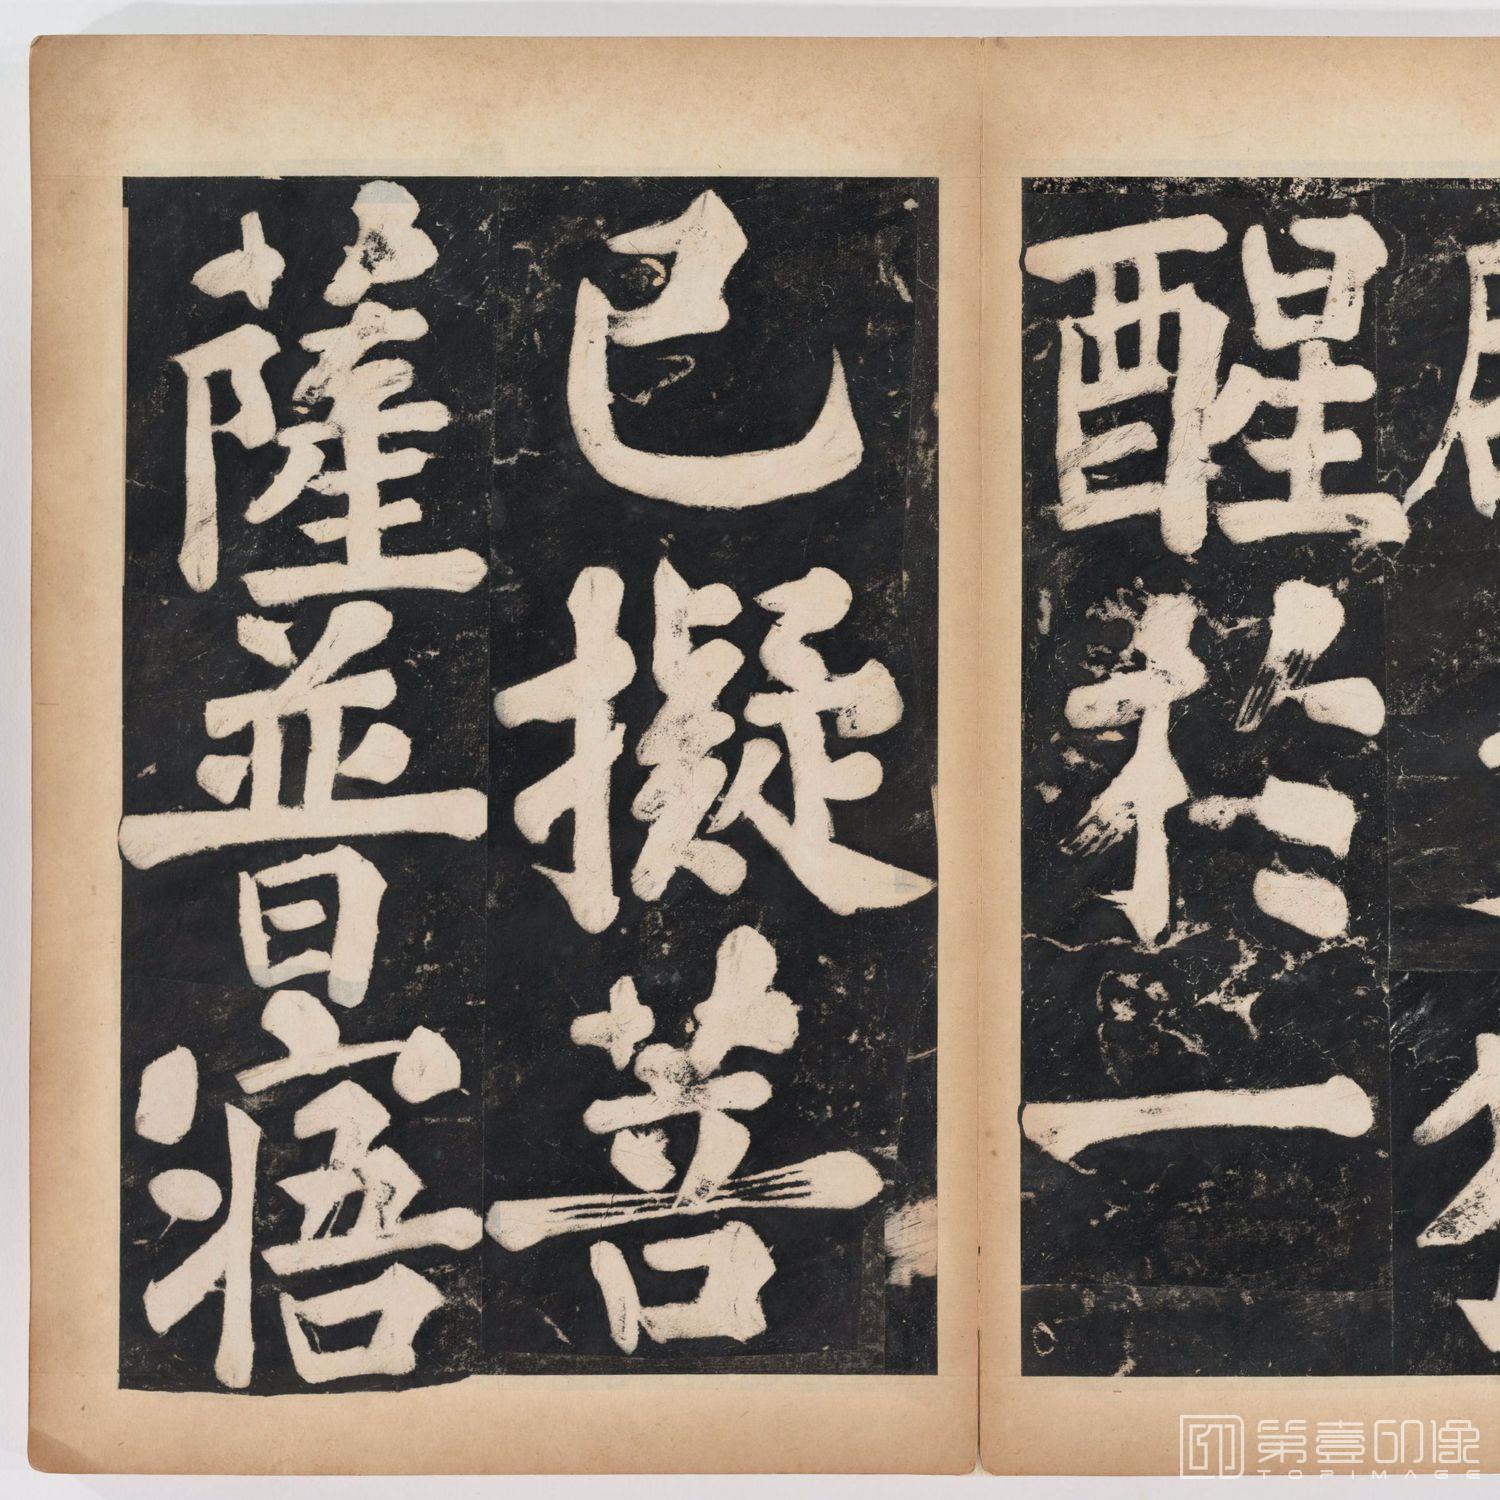 醒於一
已擬菩
薩並曰寤
第壹印像
TOPIMAGE